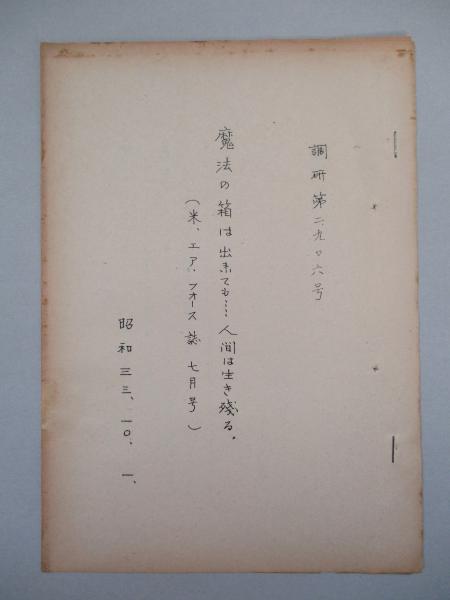 調研第二九〇六号
魔法の箱は出来ても…人間は生き残る。
（米、エア・フォース誌 七月号）
昭和三三、一〇、一、